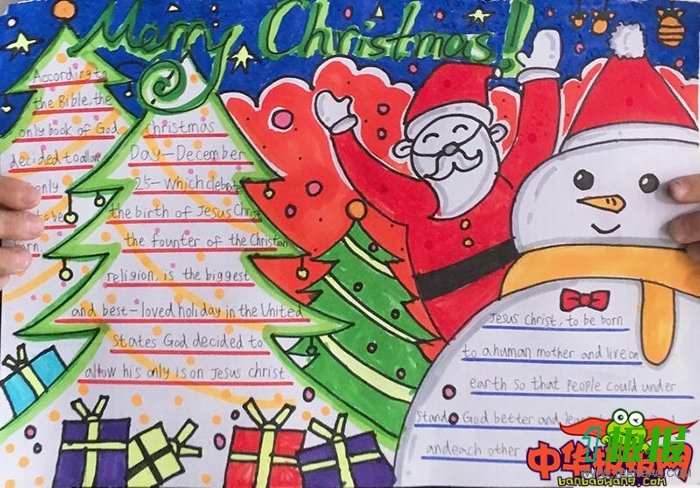 Marry Christmas!
According to
the Bible, the
only book of God
decided to allow
only
to be
born.
christmas
Day-December
25-Which
the birth of Jesus Christ
the founter of the Christian
religion, is the biggest
and best-loved holiday in the United
States God decided to
allow his only is on Jesus christ
Jesus Christ, to be born
to a human mother and live on
earth so that people could under
stand God better and learn
andeach other
中华板报网
banbaowang.com